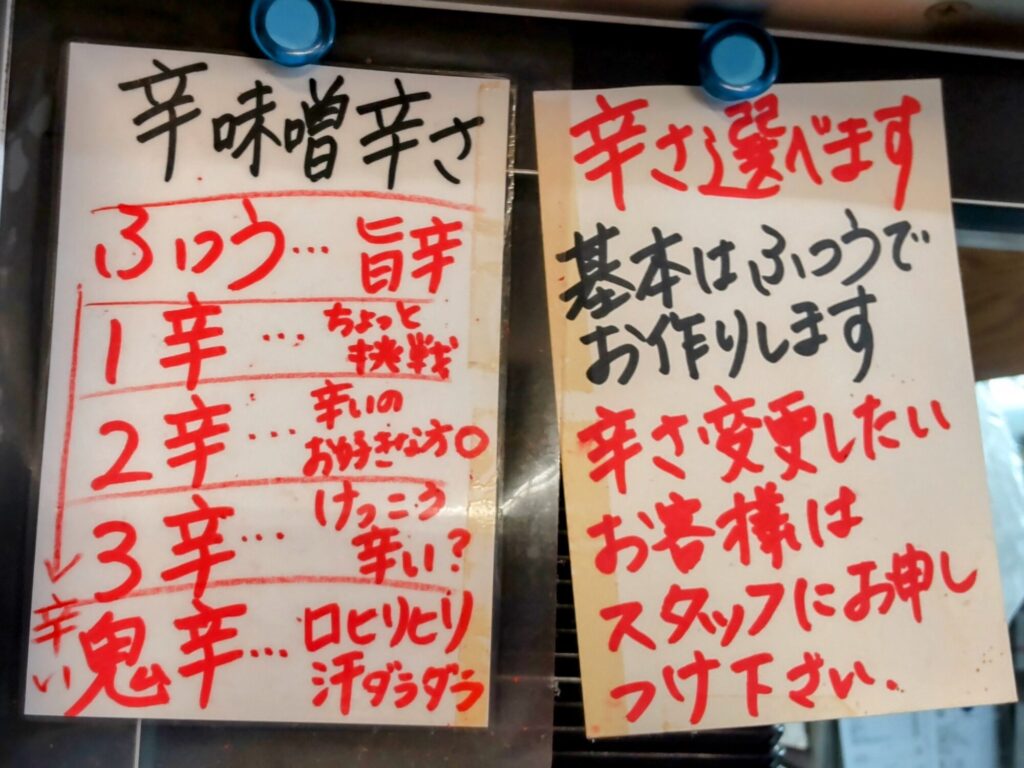 辛味噌辛さ
ふつう… 旨辛
1辛… ちょっと
挑戦
2辛… 辛いの
お好きな方○
3辛… けっこう
辛い?
鬼辛… 口ヒリヒリ
汗ダラダラ
辛い
辛さ選べます
基本はふつうで
お作りします
辛さ変更したい
お客様は
スタッフにお申し
つけ下さい、